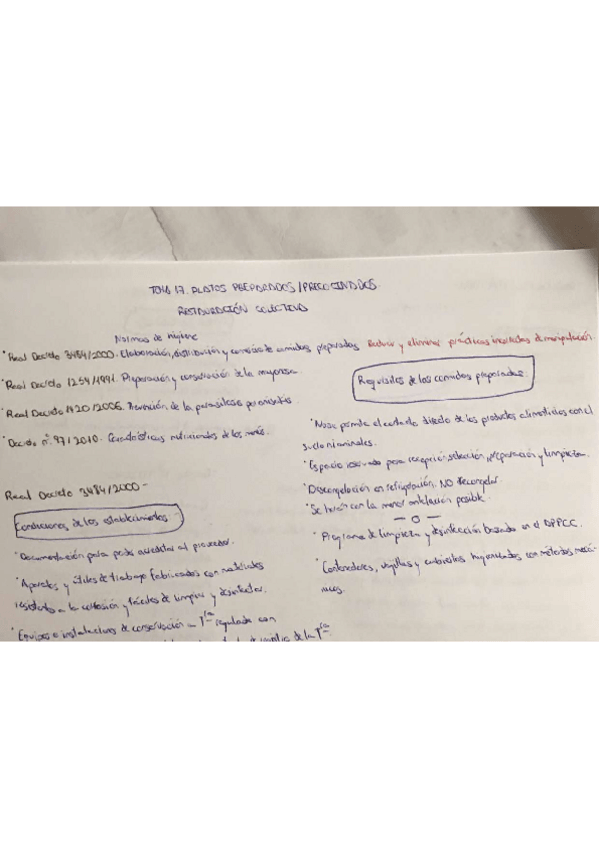 TEMA 17. PLATOS PREPARADOS/PRECOCINADOS.
RESTAURACIÓN COLECTIVA
Normas de higiene
· Real Decreto 3484/2000. Elaboración, distribución y comercio de comidas preparadas. Reducir y eliminar prácticas incorrectas de manipulación.
· Real Decreto 1254/1991. Preparación y conservación de la mayonesa
· Real Decreto 1420/2006. Prevención de la parasitosis por anisakis
· Decreto nº 97/2010. Características nutricionales de los menús.
Real Decreto 3484/2000-
Condiciones de los establecimientos.
· Documentación para poder acreditar al proveedor.
· Aparatos y útiles de trabajo fabricados con materiales
resistentes a la corrosión y fáciles de limpiar y desinfectar.
· Equipos e instalaciones de conservación - Tra regulada con
de la Tra.
Requisitos de las comidas preparadas.
· No se permite el contacto directo de los productos alimenticios con el
suelo ni animales.
· Espacio reservado para recepción, selección, preparación y limpieza.
· Descongelación en refrigeración. NO Recongelar.
· Se harán con la menor antelación posible.
— o —
· Programa de limpieza y desinfección basado en el APPCC.
· Contenedores, vajillas y cubiertos higienizados con métodos mecá-
nicos.